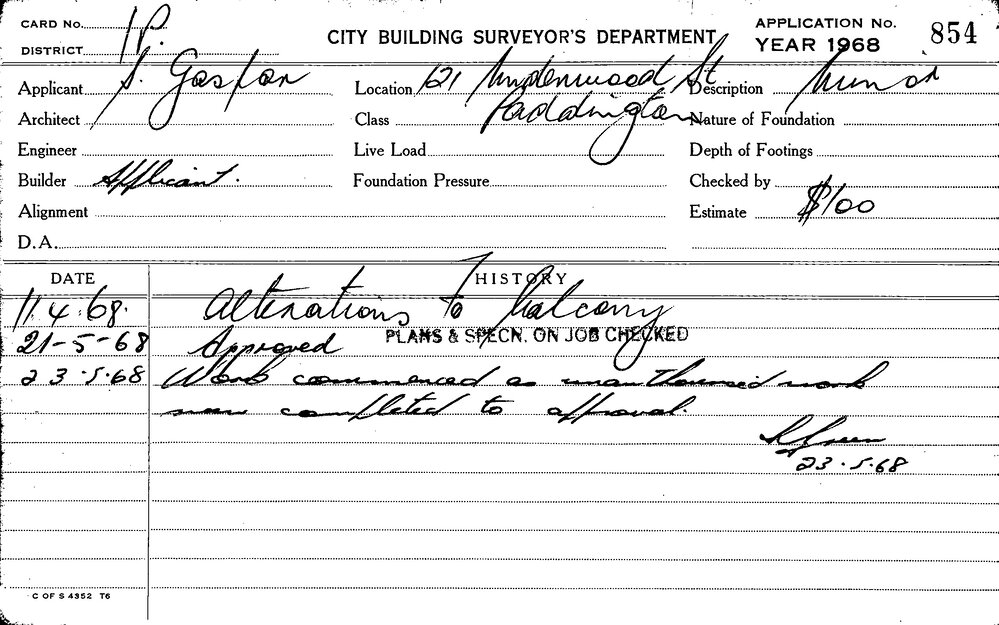 CARD No. 1P.
DISTRICT
CITY BUILDING SURVEYOR'S DEPARTMENT
APPLICATION No. 854
YEAR 1968
Applicant S. Gaspar Location 121 Underwood St Description Minor
Architect Class Paddington Nature of Foundation
Engineer Live Load Depth of Footings
Builder Applicant. Foundation Pressure Checked by
Alignment Estimate $100
D.A.
DATE HISTORY
11.4.68. Alterations to balcony
21-5-68 Approved PLANS & SPECN. ON JOB CHECKED
23.5.68 Work commenced as unauthorised work
now completed to approval.
Green
23.5.68
C OF S 4352 T6